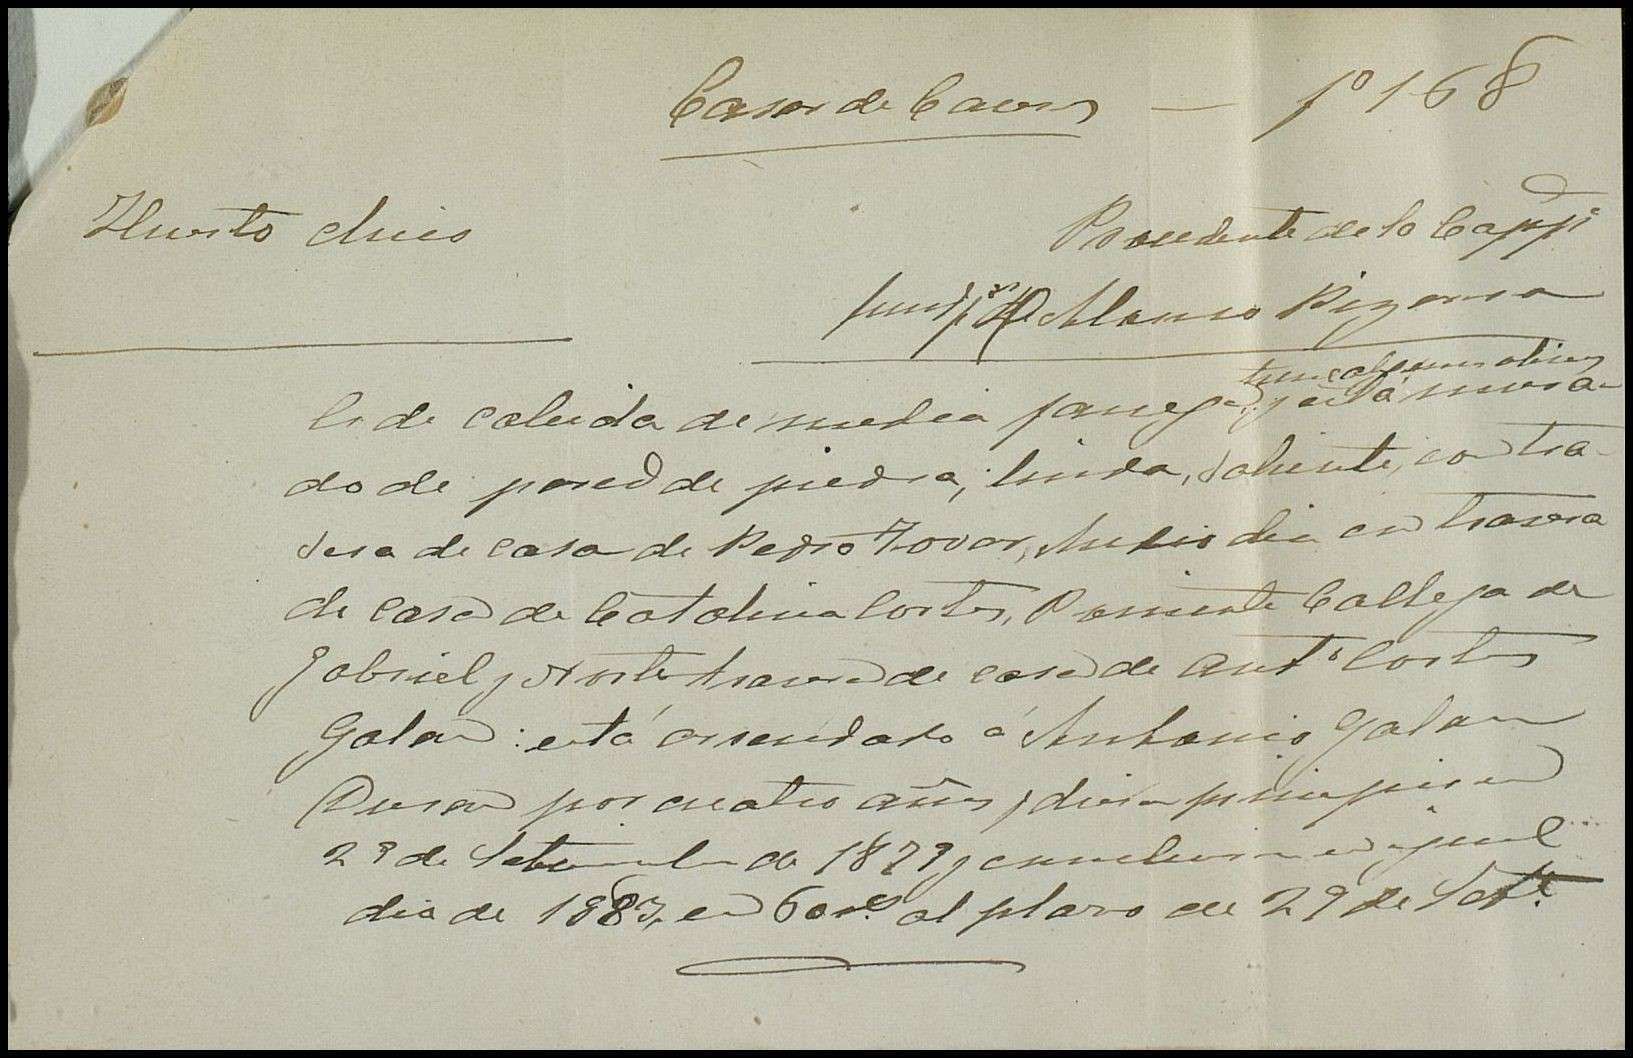 Casar de Caceres — fº 168
Huerto chico
Procedente de la Capp.ª
fund.ª p.r D. Alonso Pizarro
tiene algunos olivos
Es de cabida de media fanega y está mura-
do de pared de piedra; linda, Saliente, con tra-
sera de casa de Pedro Tovar, Medio dia con trasera
de casa de Catalina Cortes, Poniente Calleja de
Gabriel y Norte trasera de casa de Ant.º Cortes
Galan: está arrendado á Antonio Galan
Duran por cuatro años, dieron principio en
29 de Setiembre de 1879 y concluiran en igual
dia de 1883, en 60 r.s al plazo de 29 de Set.e